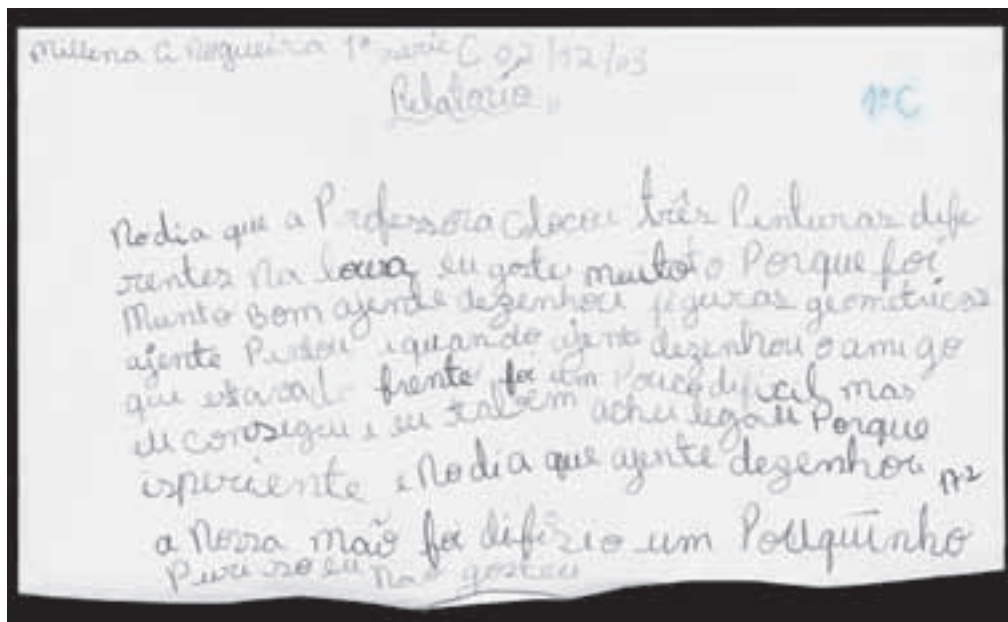 Millena C Nogueira 1ª serie C 02/12/03
Relatorio
1ª C
No dia que a Professora colocou três Pinturas dife
rentes na lousa eu gostei muito Porque foi
Munto Bom ajente dezenhou figuras geometricas
ajente Pintou e quando ajente dezenhou o amigo
que estava frente foi um Pouco dificil mas
eu consegeu e eu achei legau Porque
esperiente e No dia que ajente dezenhou
a Nossa mão foi difizio um Pouquinho
Puriso eu não gosteu